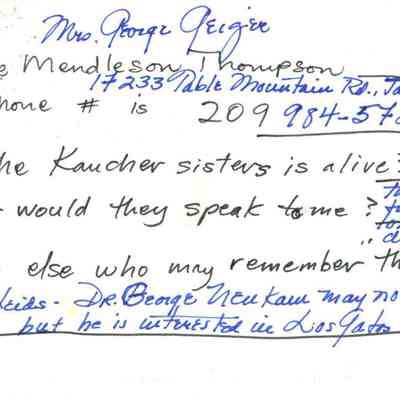 Mrs. George Geiger
Mendleson Thompson
17233 Table Mountain Rd.,
hone # is 209 984-57
he Kaucher sisters is alive?
would they speak to me?
else who may remember th
leids - Dr. George Neukam may no
but he is interested in Los Gatos